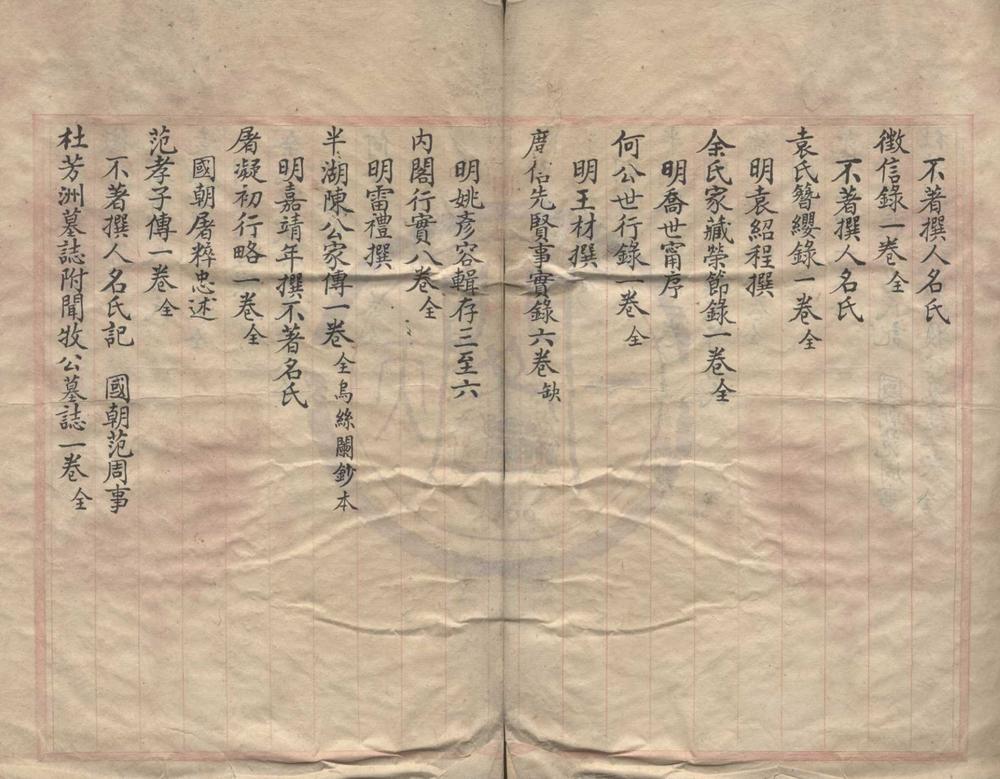 不著撰人名氏
徵信錄一卷全
不著撰人名氏
袁氏簪纓錄一卷全
明袁紹程撰
余氏家藏榮節錄一卷全
明喬世甯序
何公世行錄一卷全
明王材撰
先賢事實錄六卷缺
明姚彥容輯存三至六
內閣行實八卷全
明雷禮撰
半湖陳公家傳一卷全烏絲闌鈔本
明嘉靖年撰不著名氏
屠凝初行略一卷全
國朝屠粹忠述
范孝子傳一卷全
不著撰人名氏記 國朝范周事
杜芳洲墓誌附聞牧公墓誌一卷全